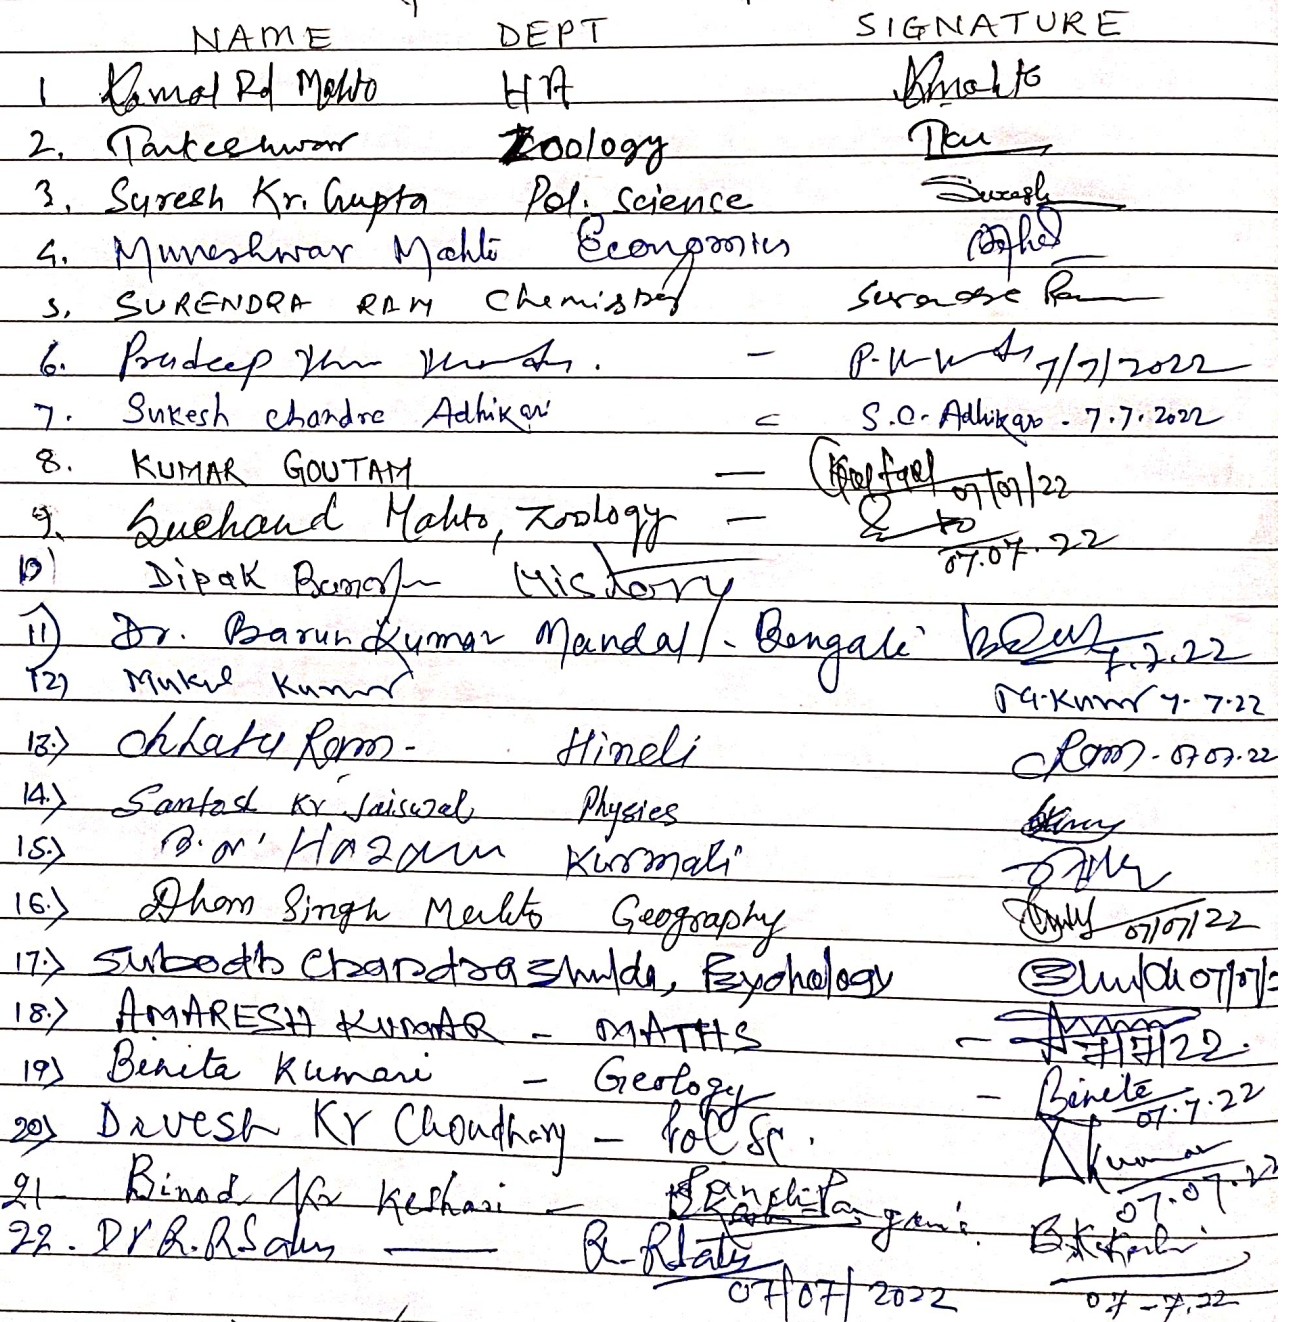 NAME DEPT SIGNATURE
1 Kamal Rd Mahto HA Kmahto
2. Tarkeshwar Zoology
3. Suresh Kr. Gupta Pol. Science Suresh
4. Muneshwar Mahto Economics
5. SURENDRA RAM Chemistry Ram
6. Pradeep - 7/7/2022
7. Sukesh Chandra Adhikari S.C. Adhikari - 7.7.2022
8. KUMAR GOUTAM — 07/07/22
9. Suchand Mahto, Zoology — 07.07.22
10) Dipak History
11) Dr. Barun Kumar Mandal - Bengali 7.7.22
12) Mukul Kumar M.Kumar 7.7.22
13.) Chhatu Ram - Hindi CRam - 07.07.22
14.) Santosh Kr Jaiswal Physics
15.) Hazam Kurmali
16.) Singh Mahto Geography 07/07/22
17.) Subodh Chandra Shulda, Psychology 07/07/
18.) AMARESH KUMAR - MATHS - 7/7/22.
19) Binita Kumari - Geology - Binita 07.7.22
20) Devesh Kr Choudhary - Pol Sc. Kumar 07.07.22
21 - Binod Kr Keshari -
22. Dr R.R Sahu — 07/07/2022 07-7.22